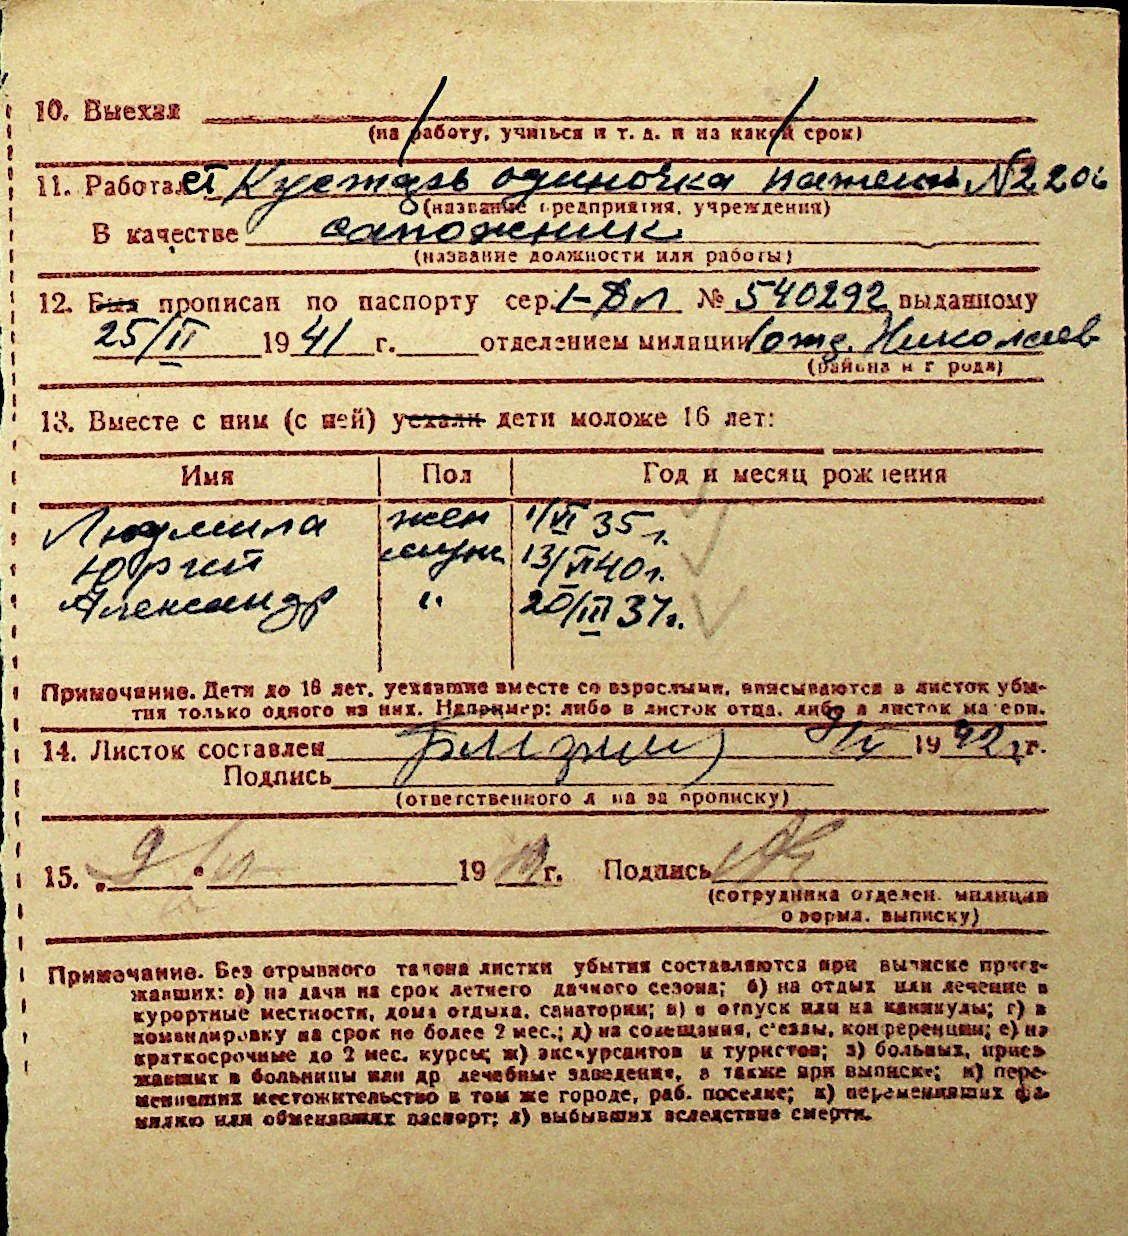 10. Выехал
(на работу, учиться и т. д. и на какой срок)
11. Работает Кустарь одиночка патент № 2206
(название предприятия, учреждения)
В качестве сапожник
(название должности или работы)
12. Был прописан по паспорту сер. 1-ДЛ № 540292 выданному
25/II 1941 г. отделением милиции 1 отд. Николаев
(района и города)
13. Вместе с ним (с ней) уехали дети моложе 16 лет:
Имя Пол Год и месяц рождения
Людмила жен 1/VI 35 г.
Юргий муж 13/VI 40 г.
Александр " 20/III 37 г.
Примечание. Дети до 16 лет, уехавшие вместе со взрослыми, вписываются в листок убы-
тия только одного из них. Например: либо в листок отца, либо в листок матери.
14. Листок составлен 1942 г.
Подпись
(ответственного лица за прописку)
15. 9 19 г. Подпись
(сотрудника отделен. милиции
оформл. выписку)
Примечание. Без отрывного талона листки убытия составляются при выписке приез-
жавших: а) на дачи на срок летнего дачного сезона; б) на отдых или лечение в
курортные местности, дома отдыха, санатории; в) в отпуск или на каникулы; г) в
командировку на срок не более 2 мес.; д) на совещания, съезды, конференции; е) на
краткосрочные до 2 мес. курсы; ж) экскурсантов и туристов; з) больных, приез-
жавших в больницы или др лечебные заведения, а также при выписке; и) пере-
менивших местожительство в том же городе, раб. поселке; к) переменивших фа-
милию или обменявших паспорт; л) выбывших вследствие смерти.